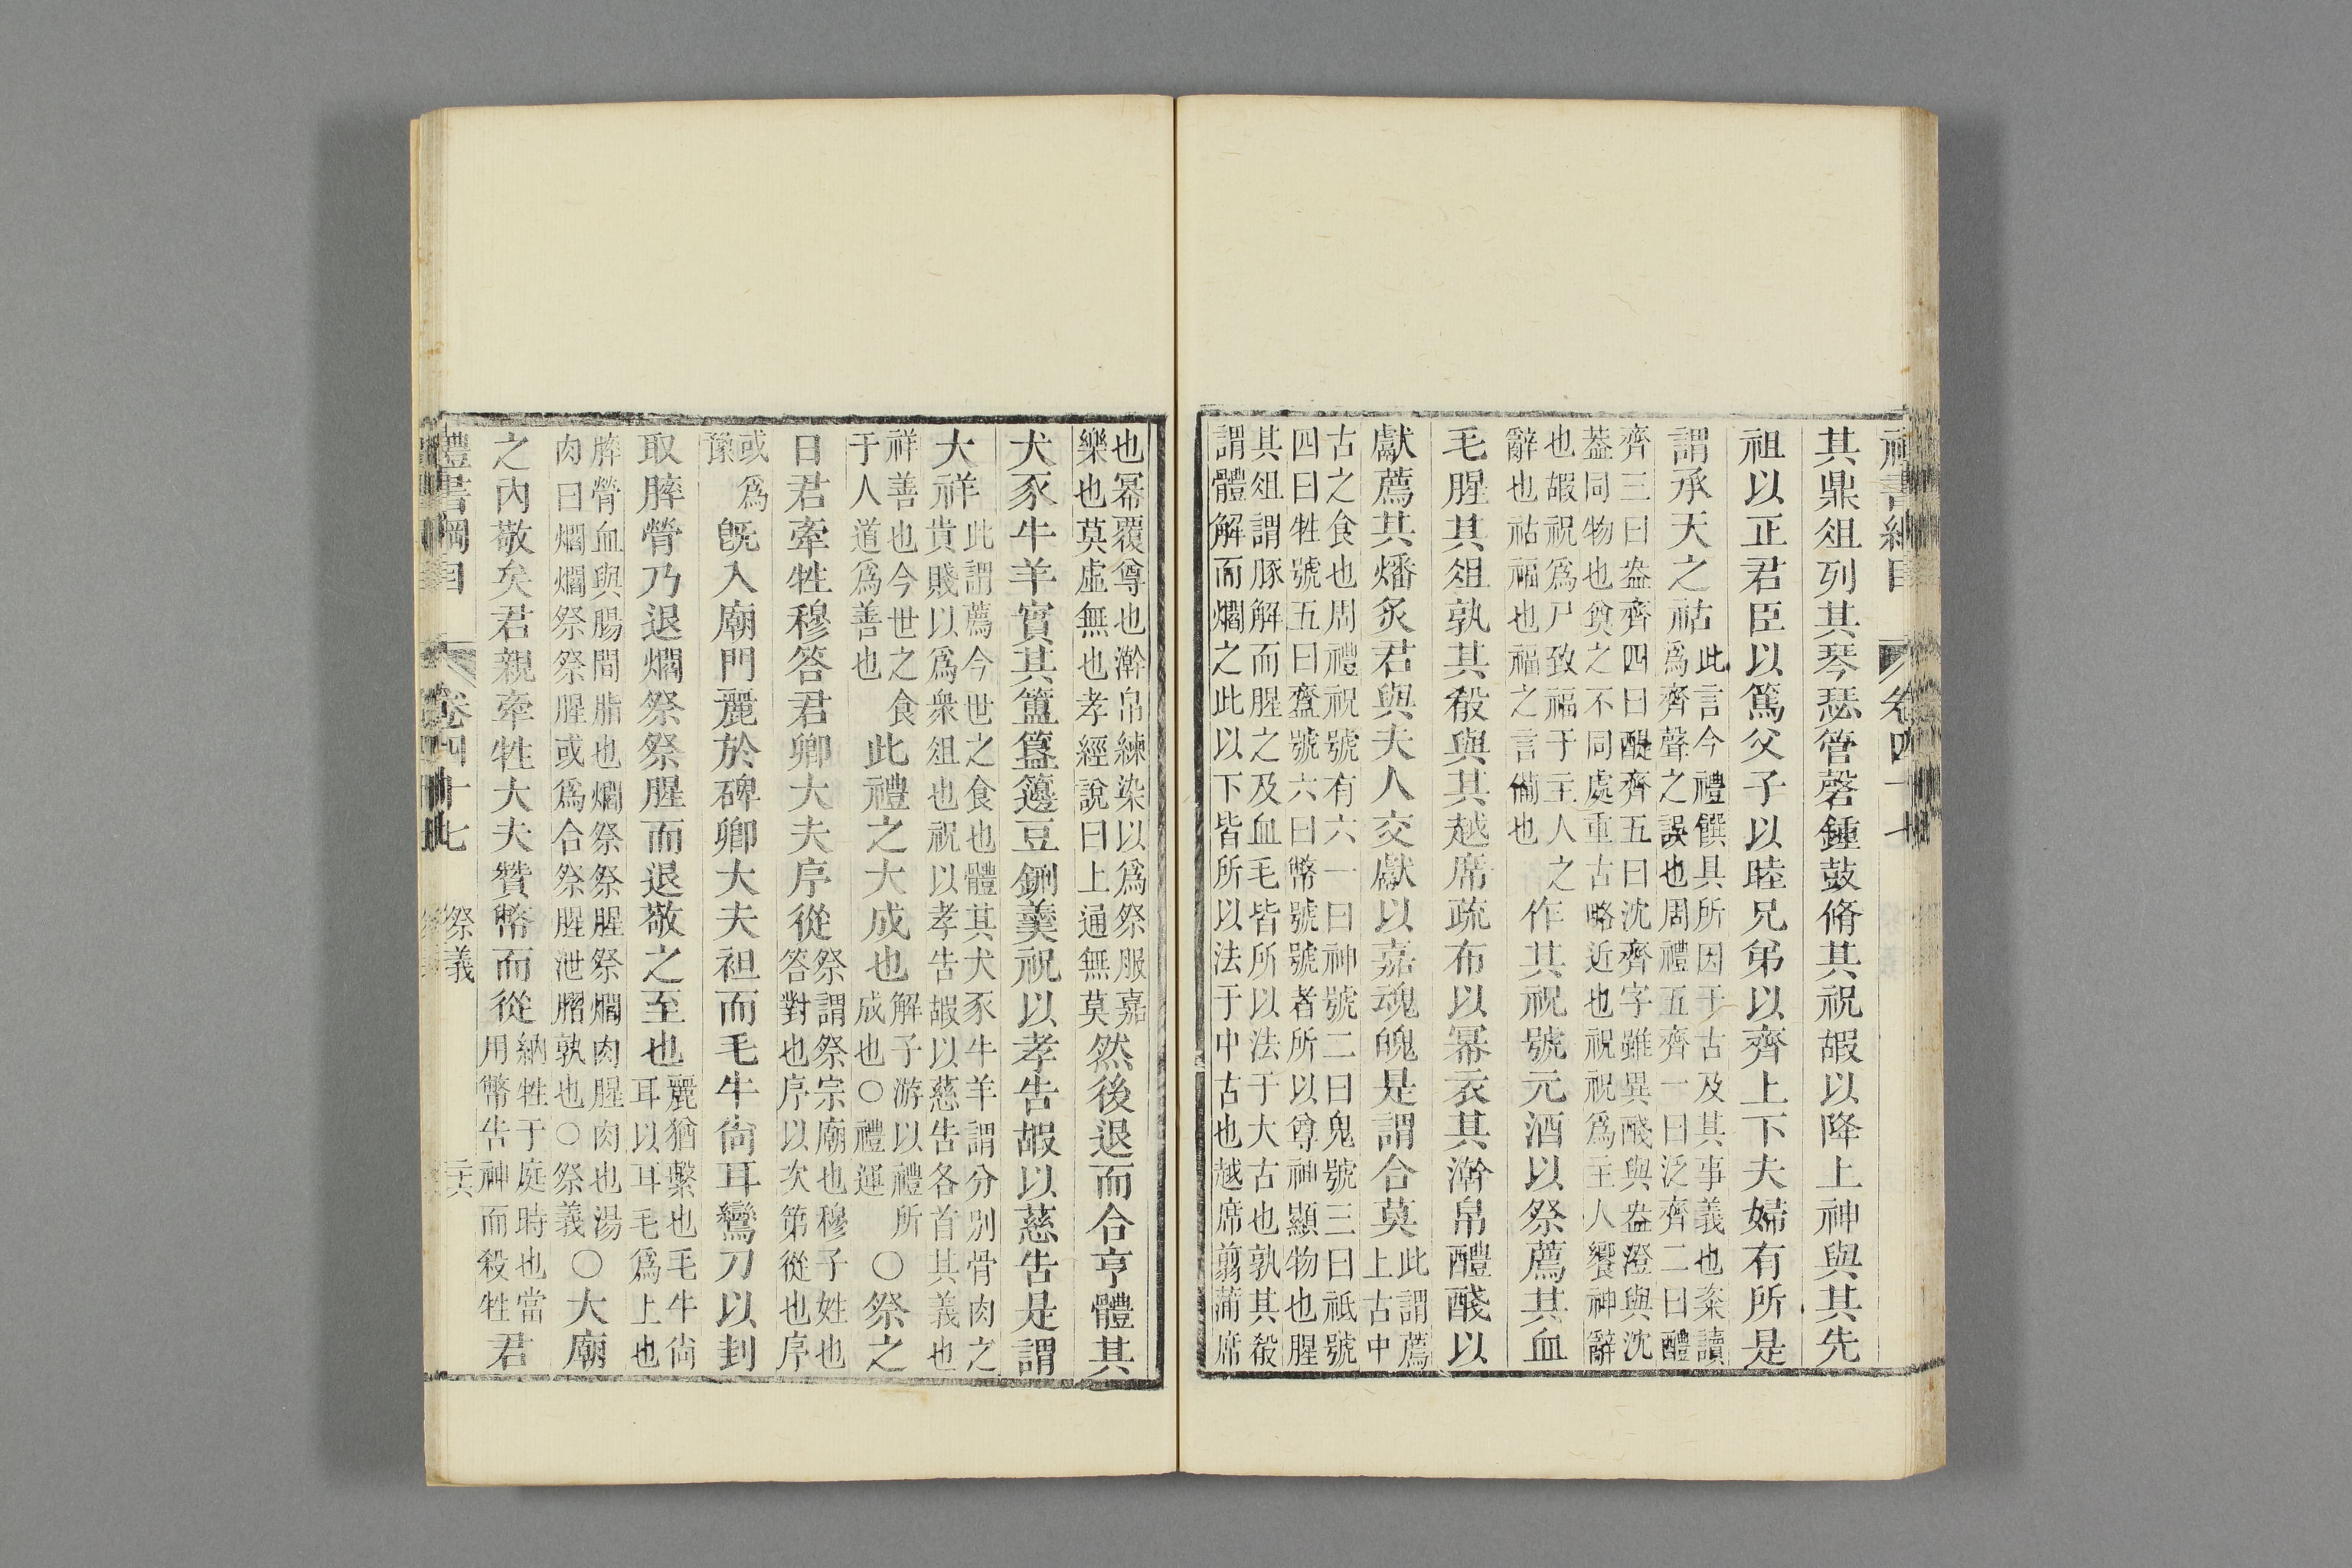 禮書綱目 卷四十七
其鼎俎列其琴瑟管磬鍾鼓脩其祝嘏以降上神與其先
祖以正君臣以篤父子以睦兄弟以齊上下夫婦有所是
謂承天之祜此言今禮饌具所因于古及其事義也粢讀
爲齊聲之誤也周禮五齊一曰泛齊二曰醴
齊三曰盎齊四曰醍齊五曰沈齊字雖異醆與盎澄與沈
葢同物也奠之不同處重古略近也祝祝爲主人饗神辭
也嘏祝爲尸致福于主人之
辭也祜福也福之言備也作其祝號元酒以祭薦其血
毛腥其俎孰其殽與其越席疏布以幂衣其澣帛醴醆以
獻薦其燔炙君與夫人交獻以嘉魂魄是謂合莫此謂薦
上古中
古之食也周禮祝號有六一曰神號二曰鬼號三曰祗號
四曰牲號五曰齍號六曰幣號號者所以尊神顯物也腥
其俎謂豚解而腥之及血毛皆所以法于大古也孰其殽
謂體解而爓之此以下皆所以法于中古也越席翦蒲席
也幂覆尊也澣帛練染以爲祭服嘉
樂也莫虛無也孝經說曰上通無莫然後退而合亨體其
犬豕牛羊實其簠簋籩豆鉶羹祝以孝告嘏以慈告是謂
大祥此謂薦今世之食也體其犬豕牛羊謂分別骨肉之
貴賤以爲衆俎也祝以孝告嘏以慈告各首其義也
祥善也今世之食
于人道爲善也此禮之大成也解子游以禮所
成也○禮運○祭之
日君牽牲穆答君卿大夫序從祭謂祭宗廟也穆子姓也
答對也序以次第從也序
或爲
豫旣入廟門麗於碑卿大夫袒而毛牛尙耳鸞刀以刲
取膟膋乃退爓祭祭腥而退敬之至也麗猶繫也毛牛尙
耳以耳毛爲上也
膟膋血與腸間脂也爓祭祭腥祭爓肉腥肉也湯
肉曰爓爓祭祭腥或爲合祭腥泄膶孰也○祭義○大廟
之內敬矣君親牽牲大夫贊幣而從納牲于庭時也當
用幣告神而殺牲君
禮書綱目 卷四十七 祭義 二六